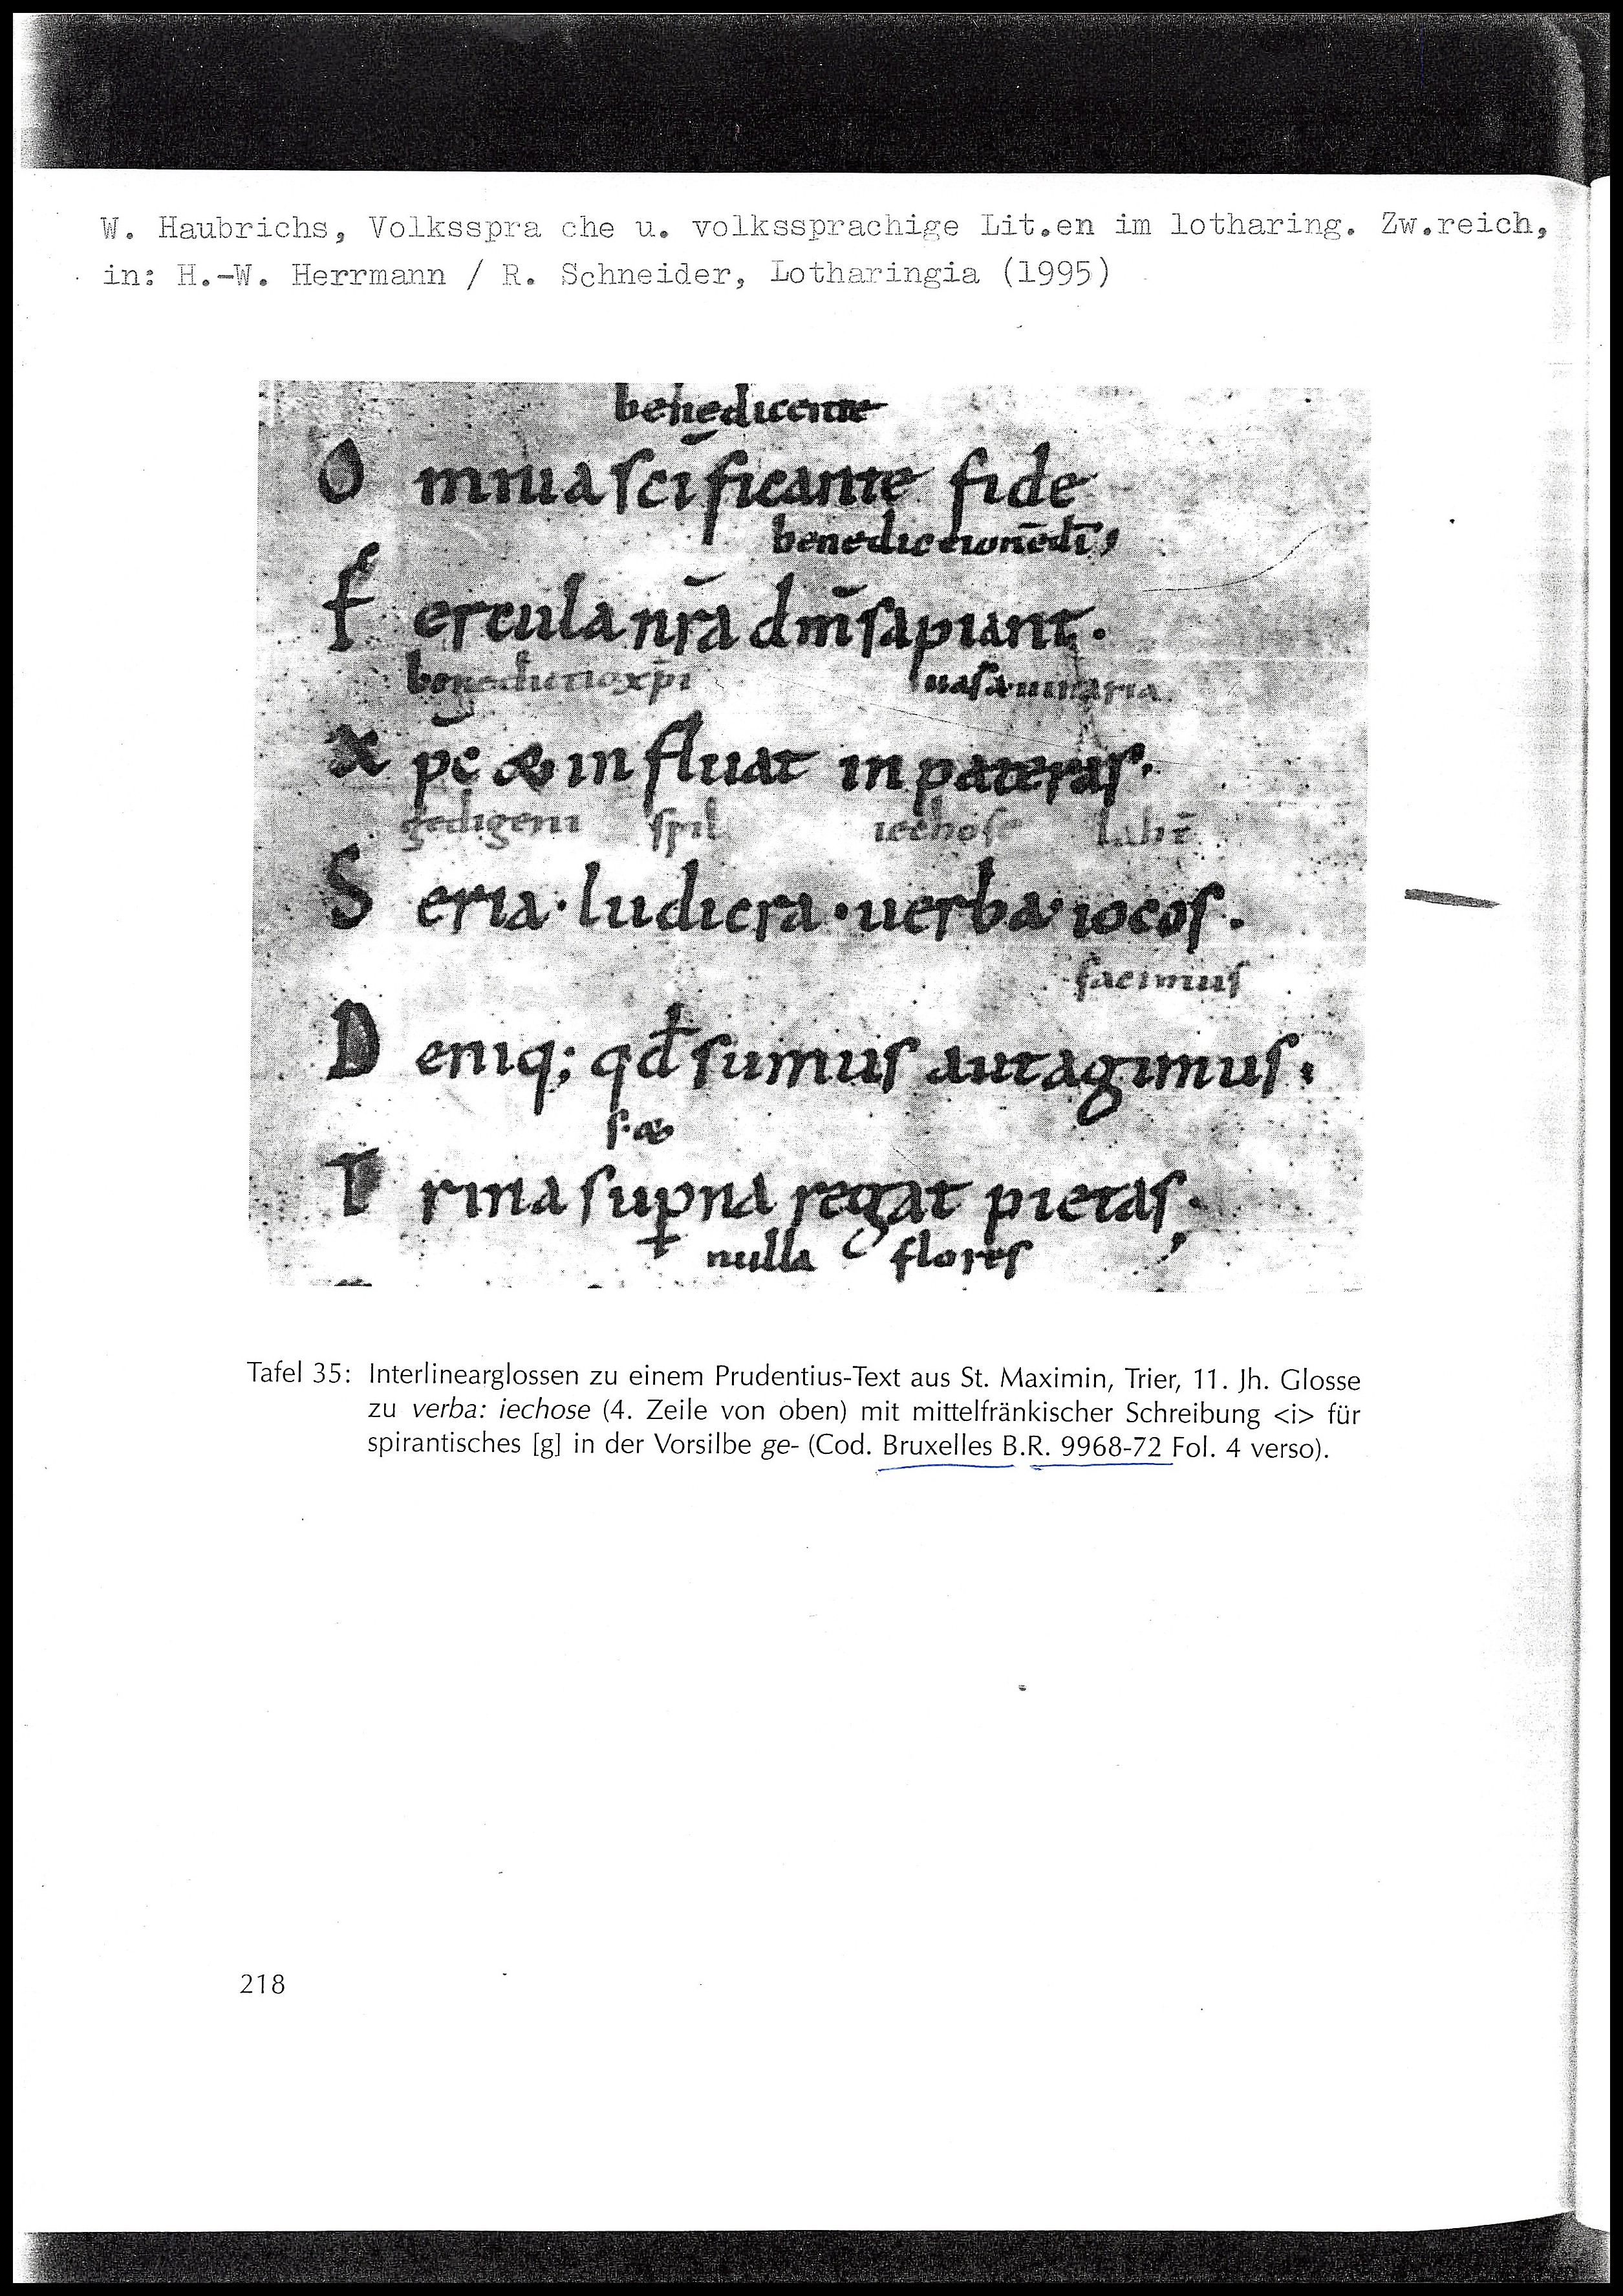 W. Haubrichs, Volksspra che u. volkssprachige Lit.en im lotharing. Zw.reich,
in: H.-W. Herrmann / R. Schneider, Lotharingia (1995)
benedicente
O mnia scīficante fide
benedictionēdī
F ercula nr̄a dm̄ sapiunt.
benedictio xp̄i uasa uinaria
X pē & influat in pateras.
gedigeni spil iechose
S eria · ludicra · uerba · iocos.
facimus
D eniq; qđ sumus aut agimus.
s. &
T rina sup̱na regat pietas.
nulla flores
Tafel 35: Interlinearglossen zu einem Prudentius-Text aus St. Maximin, Trier, 11. Jh. Glosse
zu verba: iechose (4. Zeile von oben) mit mittelfränkischer Schreibung <i> für
spirantisches [g] in der Vorsilbe ge- (Cod. Bruxelles B.R. 9968-72 Fol. 4 verso).
218